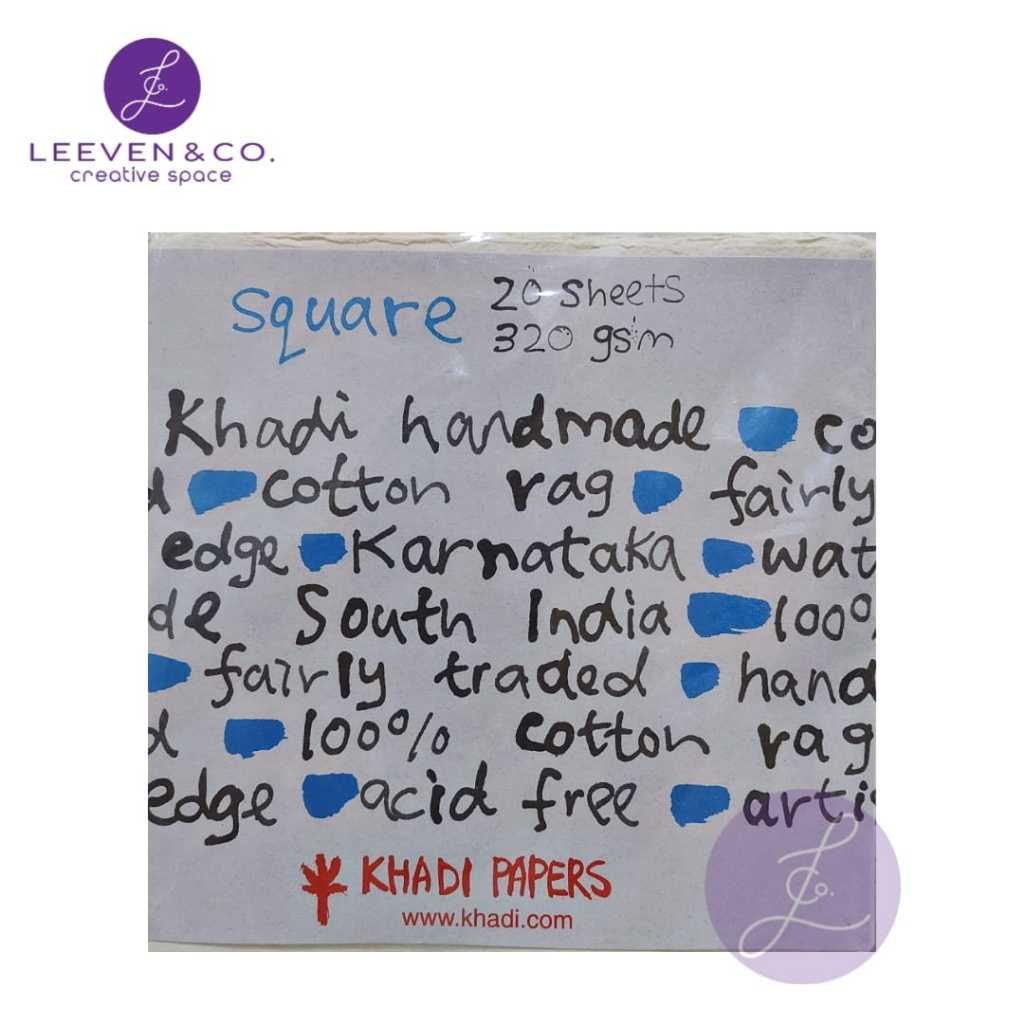 LEEVEN & CO.
creative space
square 20 sheets
320 gsm
Khadi handmade co
d cotton rag fairly
edge Karnataka wat
de South India 100%
fairly traded hand
d 100% cotton rag
edge acid free arti
KHADI PAPERS
www.khadi.com
Co.